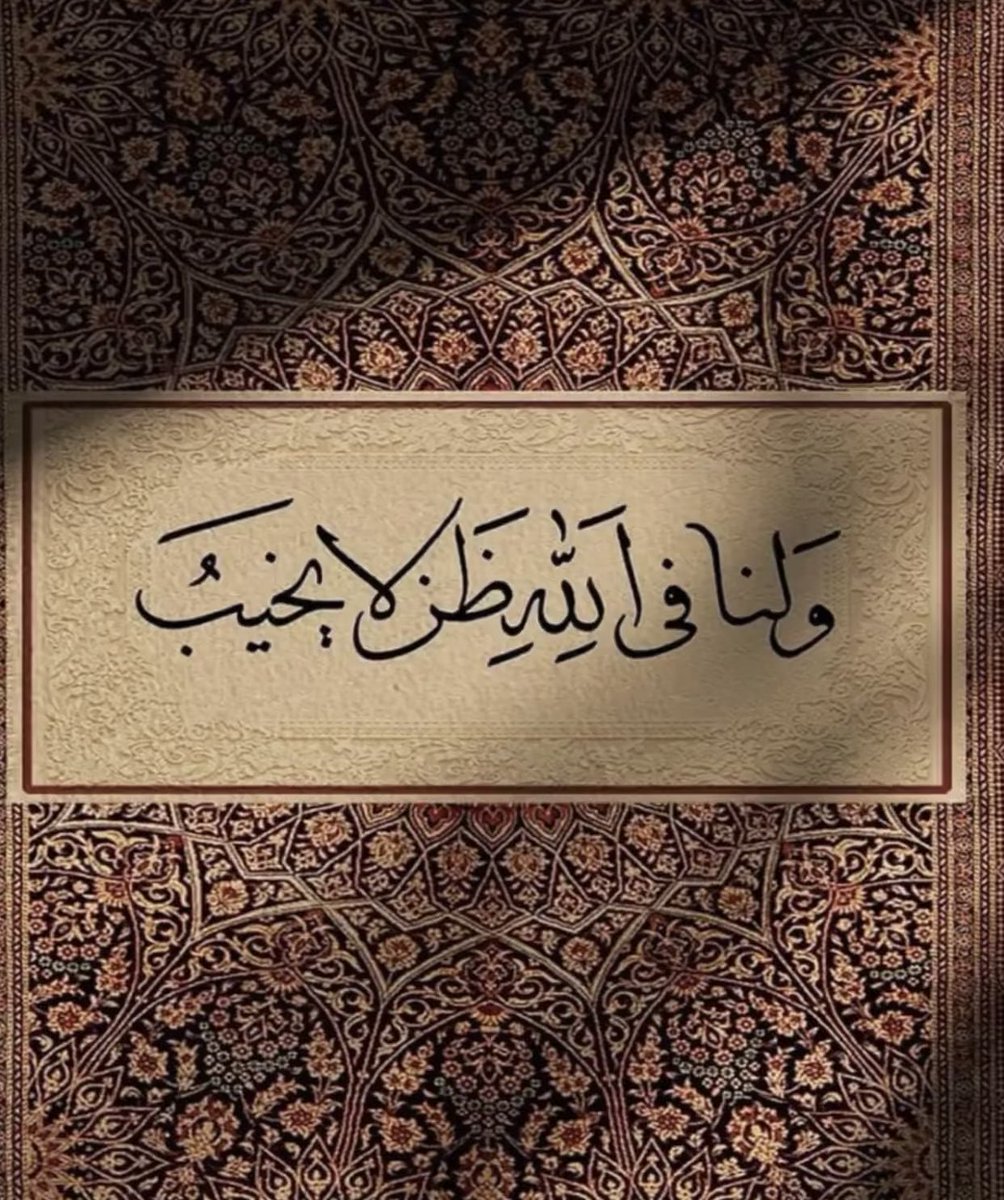 وَلنا فى اَللّٰهِ ظَن لا يخيبُ